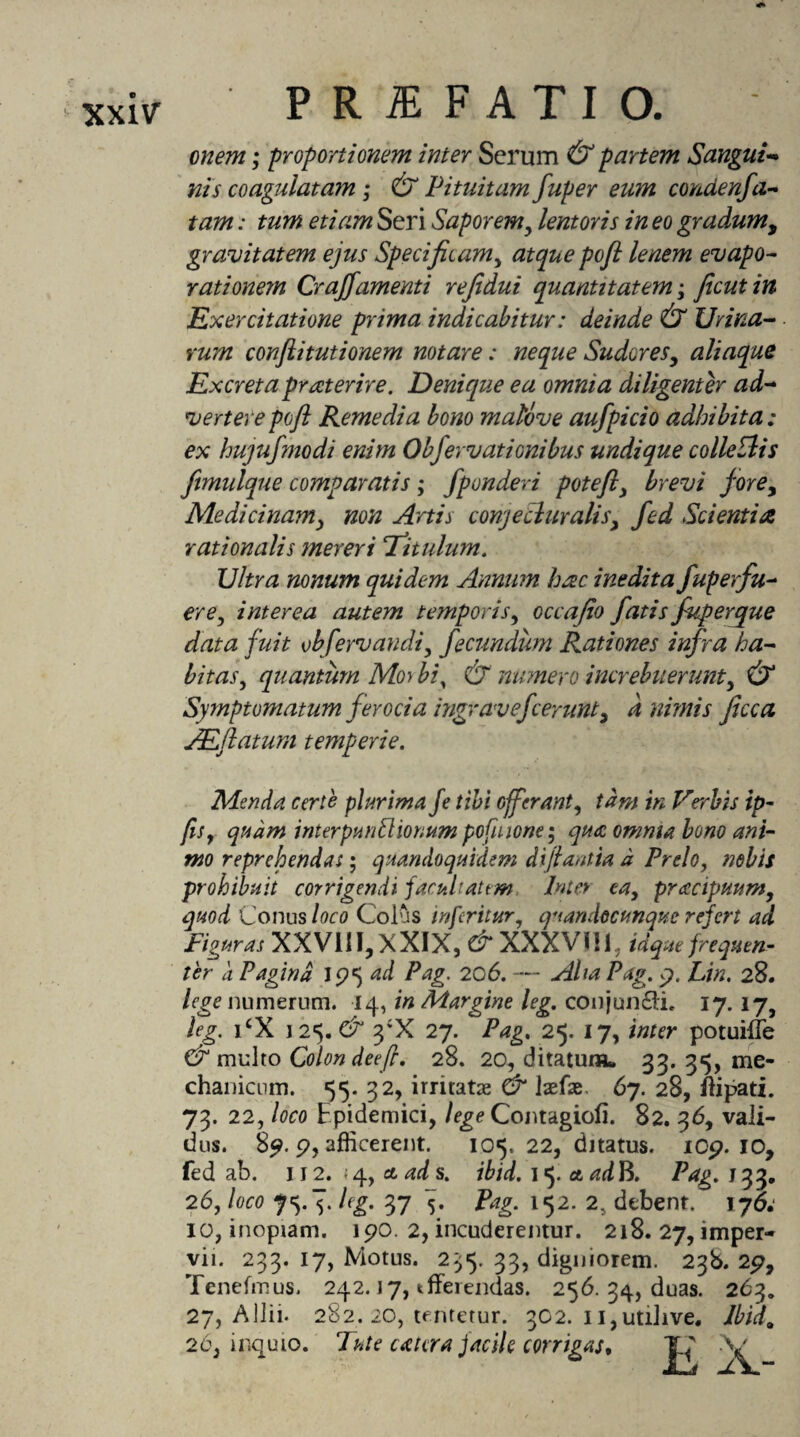 xxiv PRÆFATIO.
onem; proportionem inter Serum & partem Sangui-
nis coagulatam; & Pituitam ſuper eum condenſa-
tam: tum etiam Seri Saporem, lentoris in eo gradum,
gravitatem ejus Specificam, atque poſt lenem evapo-
rationem Craſſamenti reſidui quantitatem; ſicut in
Exercitatione prima indicabitur: deinde & Urina-
rum conſtitutionem notare: neque Sudores, aliaque
Excreta præterire. Denique ea omnia diligentèr ad-
vertere poſt Remedia bono malòve auſpicio adhibita:
ex hujuſmodi enim Obſervationibus undique collectis
ſimulque comparatis; ſponderi poteſt, brevi fore,
Medicinam, non Artis conjecturalis, ſed Scientiæ
rationalis mereri Titulum.
Ultra nonum quidem Annum hæc inedita ſuperfu-
ere, interea autem temporis, occaſio ſatis ſuperque
data fuit obſervandi, ſecundùm Rationes infra ha-
bitas, quantùm Morbi, & numero increbuerunt, &
Symptomatum ferocia ingraveſcerunt, à nimis ſicca
Æſtatum temperie.
Menda certè plurima ſe tibi offerant, tàm in Verbis ip-
ſis, quàm interpunctionum poſitione; quæ omnia bono ani-
mo reprehendas; quandoquidem diſtantia à Prelo, nobis
prohibuit corrigendi facultatem. Inter ea, præcipuum,
quod Conus loco Colûs inſeritur, quandocunque refert ad
Figuras XXVIII, XXIX, & XXXVIII, idque frequen-
tèr à Paginâ 195 ad Pag. 206. — Alia Pag. 9. Lin. 28.
lege numerum. 14, in Margine leg. conjuncti. 17. 17,
leg. 1ᶜX 125. & 3ᶜX 27. Pag. 25. 17, inter potuiſſe
& multo Colon deeſt. 28. 20, ditatum. 33. 35, me-
chanicum. 55. 32, irritatæ & læſæ. 67. 28, ſtipati.
73. 22, loco Epidemici, lege Contagioſi. 82. 36, vali-
dus. 89. 9, afficerent. 105. 22, ditatus. 109. 10,
ſed ab. 112. 4, α ad s. ibid. 15. α ad B. Pag. 133.
26, loco 75. 5. leg. 37 5. Pag. 152. 2, debent. 176.
10, inopiam. 190. 2, incuderentur. 218. 27, imper-
vii. 233. 17, Motus. 235. 33, digniorem. 238. 29,
Teneſmus. 242. 17, efferendas. 256. 34, duas. 263.
27, Allii. 282. 20, tentetur. 302. 11, utilive. Ibid.
26, inquio. Tute cætera facile corrigas.
EX-